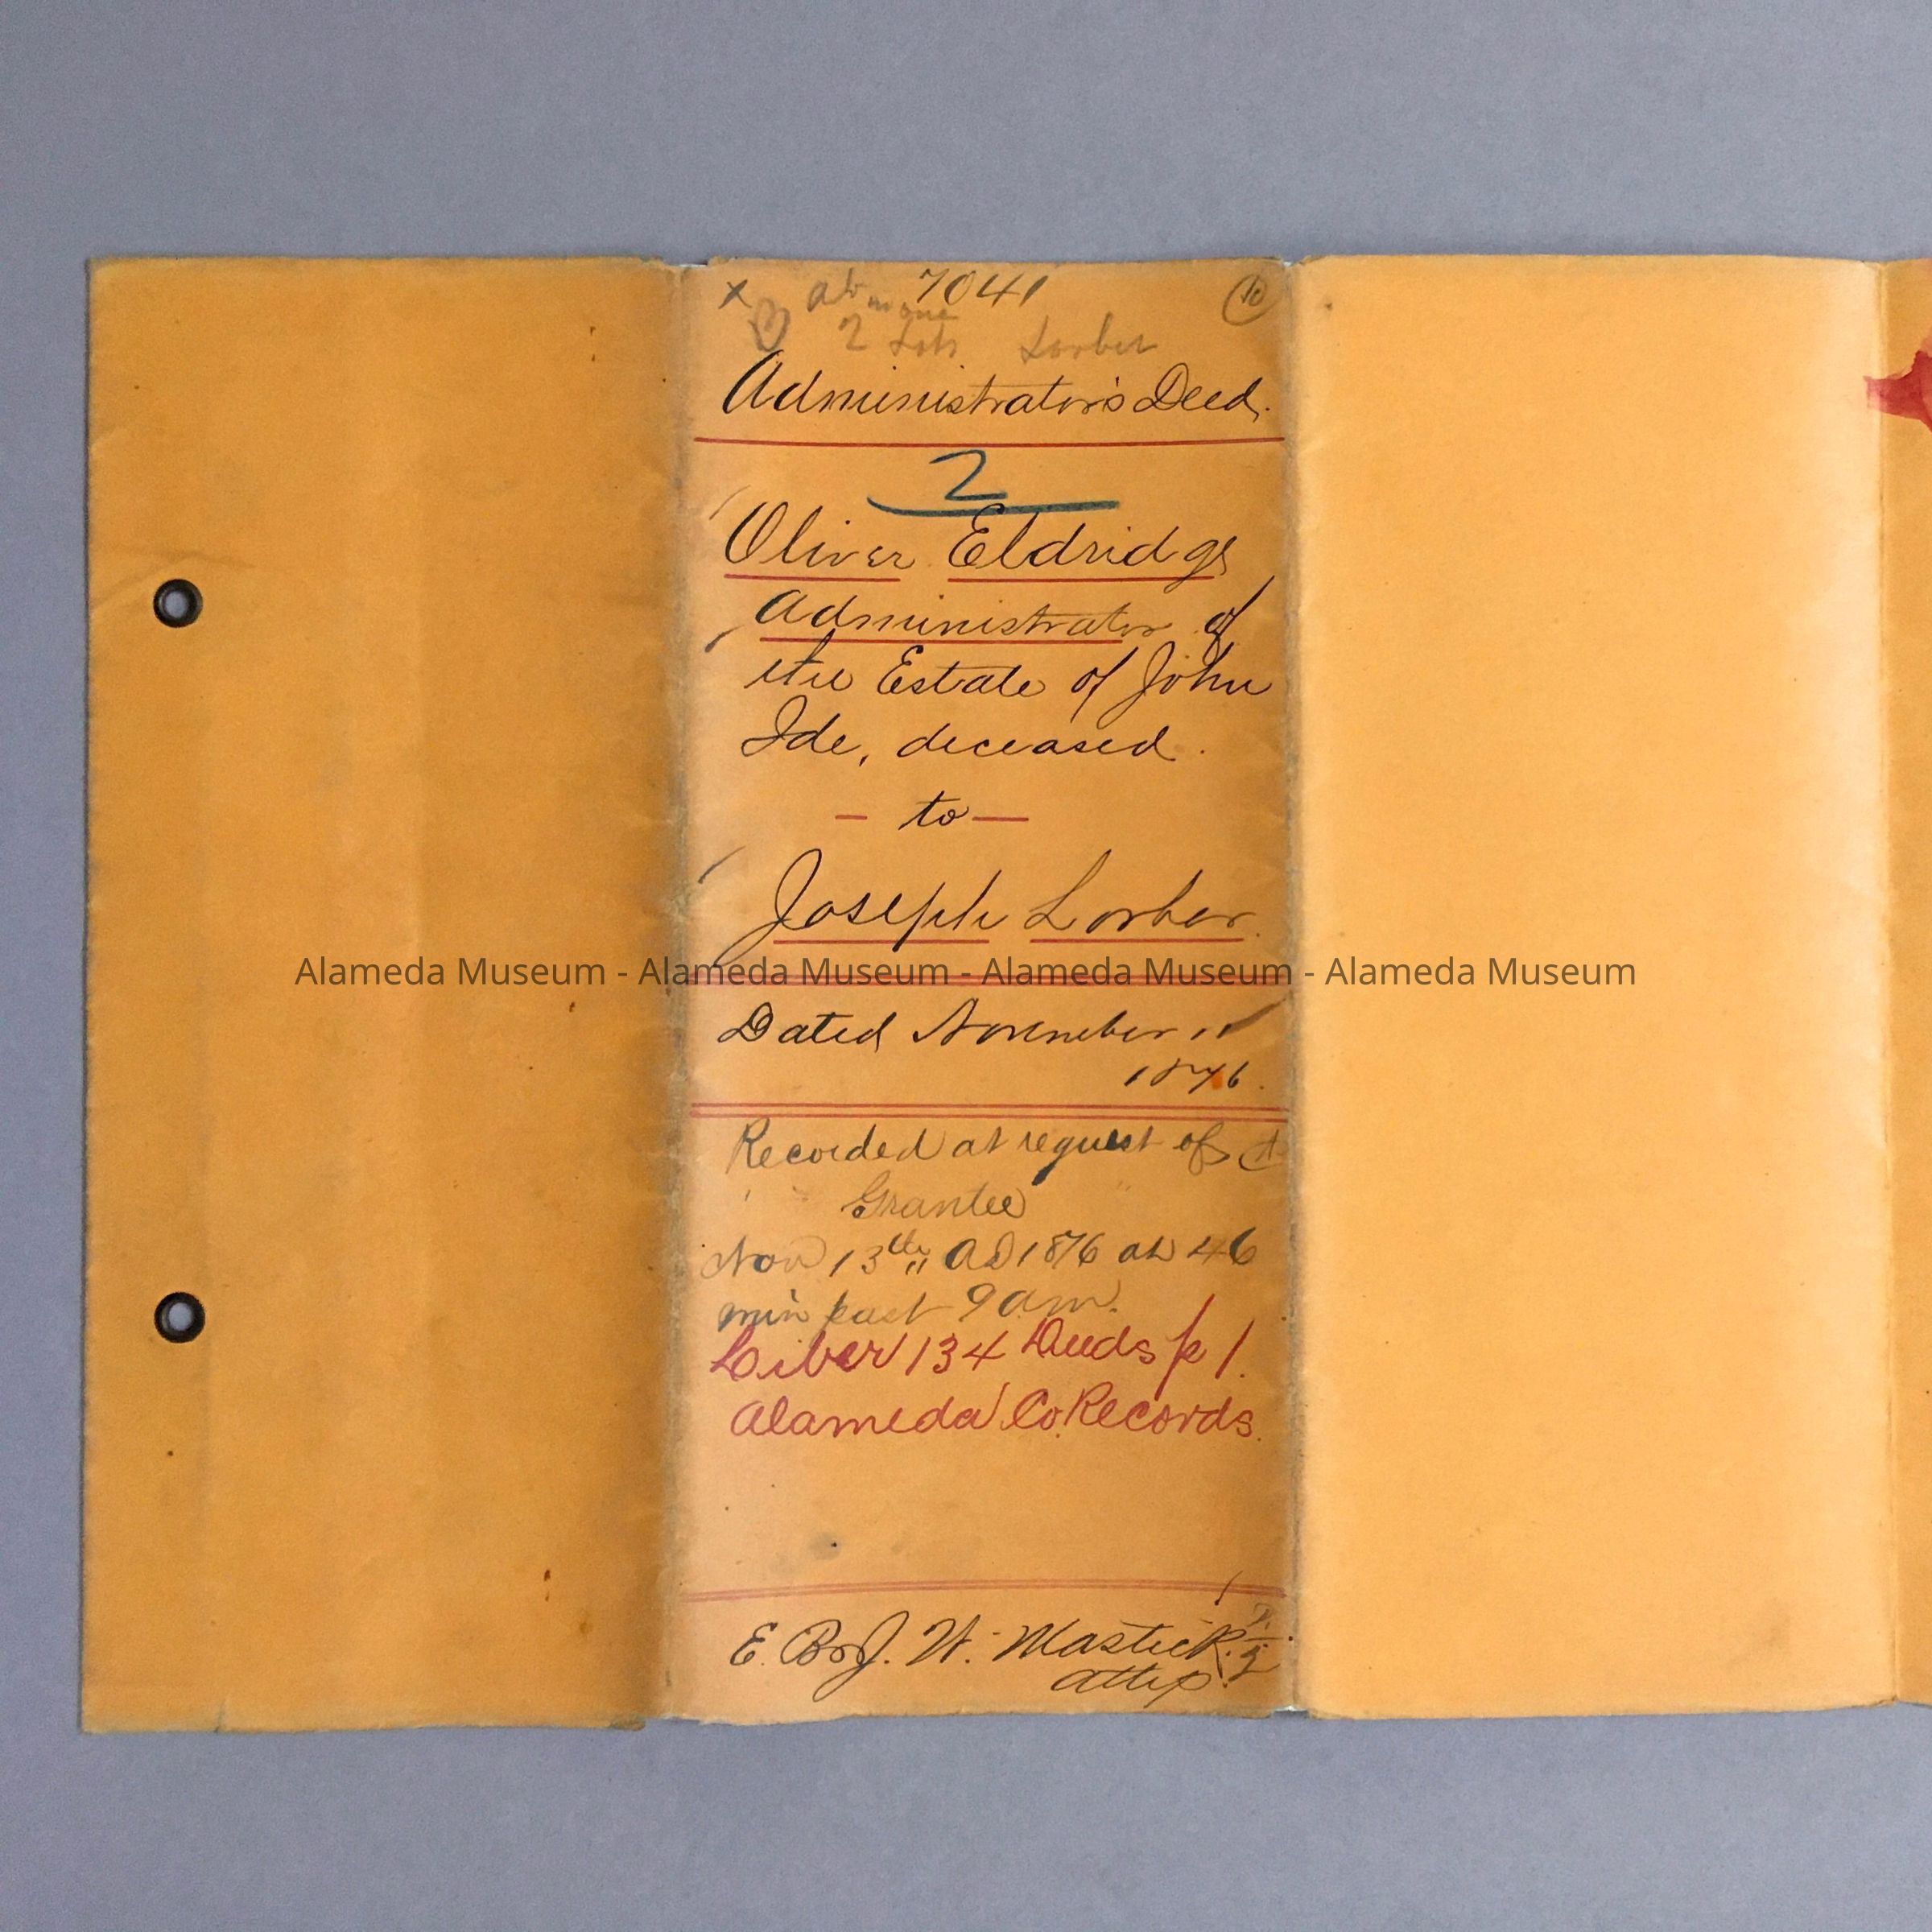 x 7041 10
2 Lots Lorber
Administrator's Deed.
2
Oliver Eldridge
Administrator of
the Estate of John
Ide, deceased.
— to —
Joseph Lorber.
Alameda Museum - Alameda Museum - Alameda Museum - Alameda Museum
Dated November 11
1876.
Recorded at request of
Grantee
Nov 13th AD 1876 at 46
min past 9 am.
Liber 134 Deeds p 1.
Alameda Co. Records.
E. B. & J. W. Mastick.
Attys.